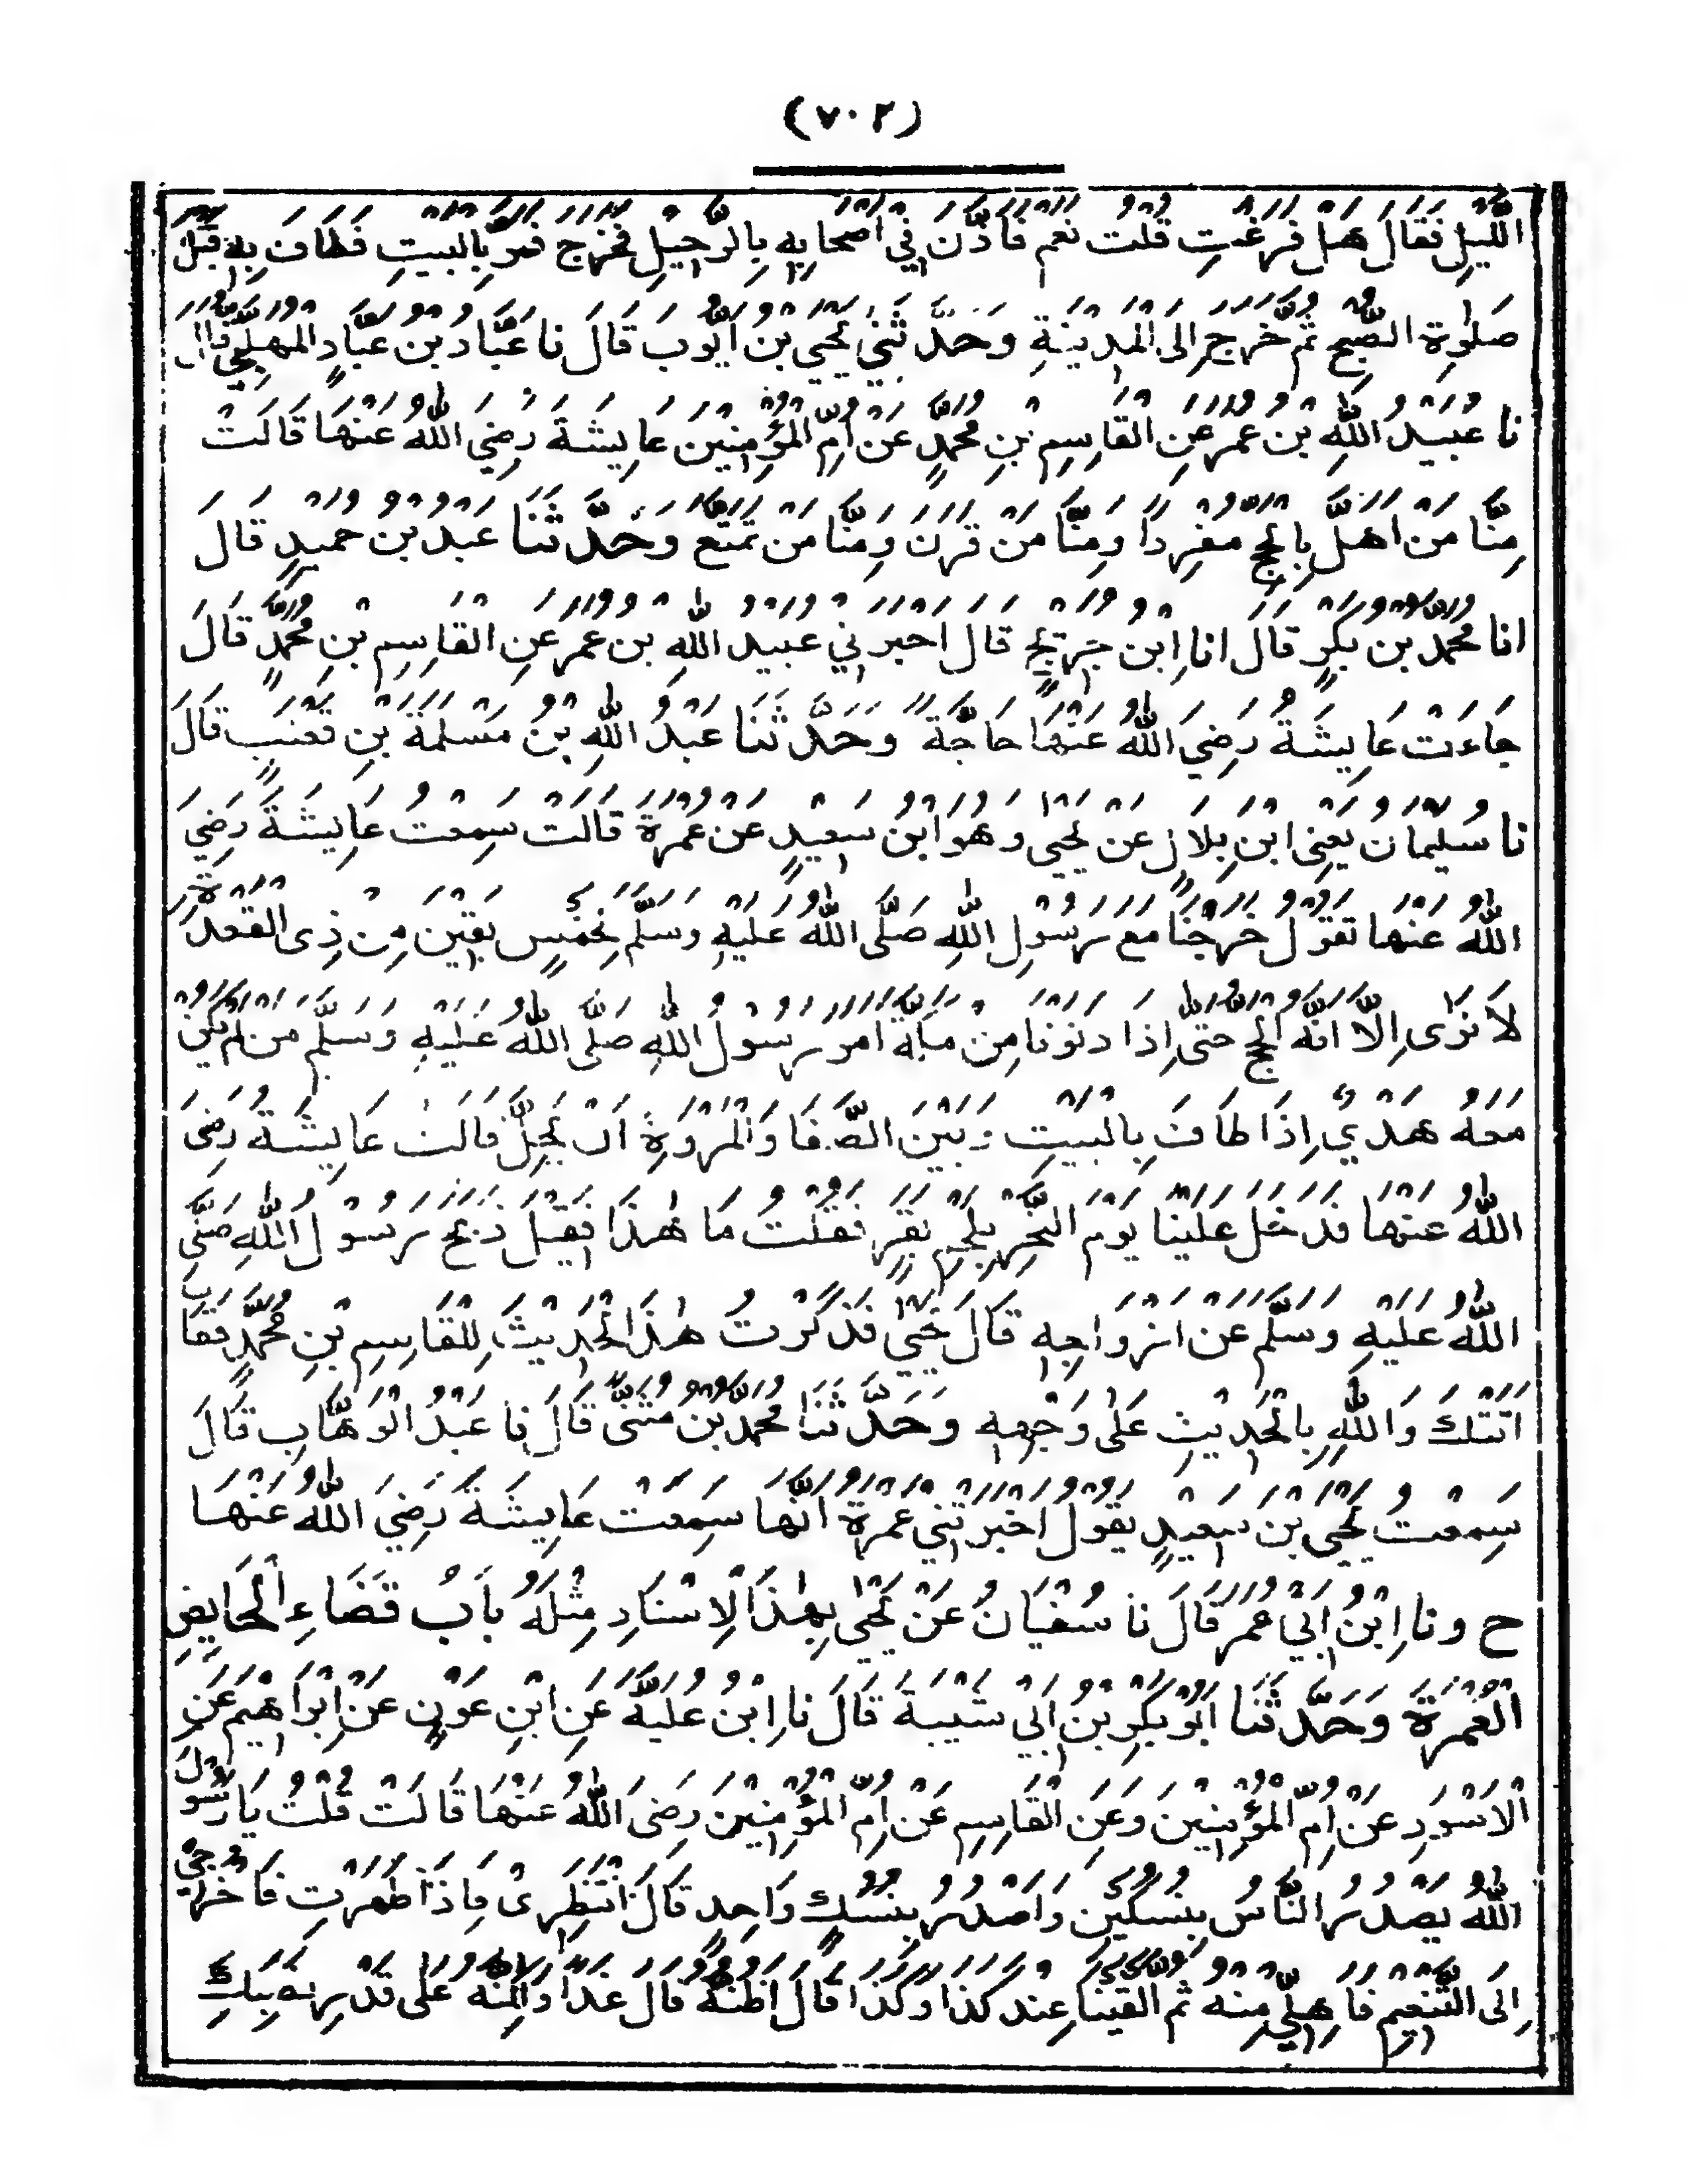 (٧٠٢)
اللَّيْلِ فَقَالَ هَلْ فَرَغْتِ قُلْتُ نَعَمْ فَاَذَّنَ فِيْ اَصْحَابِهٖ بِالرَّحِيْلِ فَخَرَجَ فَمَرَّ بِالْبَيْتِ فَطَافَ بِهٖ قَبْلَ
صَلٰوةِ الصُّبْحِ ثُمَّ خَرَجَ اِلَى الْمَدِيْنَةِ وَحَدَّثَنِيْ يَحْيَى بْنُ اَيُّوْبَ قَالَ نَا عَبَّادُ بْنُ عَبَّادٍ الْمُهَلَّبِيُّ قَالَ
نَا عُبَيْدُ اللّٰهِ بْنُ عُمَرَ عَنِ الْقَاسِمِ بْنِ مُحَمَّدٍ عَنْ اُمِّ الْمُؤْمِنِيْنَ عَايِشَةَ رَضِيَ اللّٰهُ عَنْهَا قَالَتْ
مِنَّا مَنْ اَهَلَّ بِالْحَجِّ مُفْرِدًا وَمِنَّا مَنْ قَرَنَ وَمِنَّا مَنْ تَمَتَّعَ وَحَدَّثَنَا عَبْدُ بْنُ حُمَيْدٍ قَالَ
اَنَا مُحَمَّدُ بْنُ بَكْرٍ قَالَ اَنَا اِبْنُ جُرَيْجٍ قَالَ اَخْبَرَنِيْ عُبَيْدُ اللّٰهِ بْنُ عُمَرَ عَنِ الْقَاسِمِ بْنِ مُحَمَّدٍ قَالَ
جَاءَتْ عَايِشَةُ رَضِيَ اللّٰهُ عَنْهَا حَاجَّةً وَحَدَّثَنَا عَبْدُ اللّٰهِ بْنُ مَسْلَمَةَ بْنِ قَعْنَبٍ قَالَ
نَا سُلَيْمَانُ يَعْنِى ابْنَ بِلَالٍ عَنْ يَحْيٰى وَهُوَ ابْنُ سَعِيْدٍ عَنْ عَمْرَةَ قَالَتْ سَمِعْتُ عَايِشَةَ رَضِيَ
اللّٰهُ عَنْهَا تَقُوْلُ خَرَجْنَا مَعَ رَسُوْلِ اللّٰهِ صَلَّى اللّٰهُ عَلَيْهِ وَسَلَّمَ لِخَمْسٍ بَقِيْنَ مِنْ ذِى الْقَعْدَةِ
لَا نَرٰى اِلَّا اَنَّهُ الْحَجُّ حَتّٰى اِذَا دَنَوْنَا مِنْ مَكَّةَ اَمَرَ رَسُوْلُ اللّٰهِ صَلَّى اللّٰهُ عَلَيْهِ وَسَلَّمَ مَنْ لَمْ يَكُنْ
مَعَهُ هَدْيٌ اِذَا طَافَ بِالْبَيْتِ وَبَيْنَ الصَّفَا وَالْمَرْوَةِ اَنْ يَّحِلَّ قَالَتْ عَايِشَةُ رَضِىَ
اللّٰهُ عَنْهَا فَدَخَلَ عَلَيْنَا يَوْمَ النَّحْرِ بِلَحْمِ بَقَرٍ فَقُلْتُ مَا هٰذَا فَقِيْلَ ذَبَحَ رَسُوْلُ اللّٰهِ صَلَّى
اللّٰهُ عَلَيْهِ وَسَلَّمَ عَنْ اَزْوَاجِهٖ قَالَ يَحْيٰى فَذَكَرْتُ هٰذَا الْحَدِيْثَ لِلْقَاسِمِ بْنِ مُحَمَّدٍ فَقَالَ
اَتَتْكَ وَاللّٰهِ بِالْحَدِيْثِ عَلٰى وَجْهِهٖ وَحَدَّثَنَا مُحَمَّدُ بْنُ مُثَنًّى قَالَ نَا عَبْدُ الْوَهَّابِ قَالَ
سَمِعْتُ يَحْيَى بْنَ سَعِيْدٍ يَقُوْلُ اَخْبَرَتْنِيْ عَمْرَةُ اَنَّهَا سَمِعَتْ عَايِشَةَ رَضِيَ اللّٰهُ عَنْهَا
ح وَنَا اِبْنُ اَبِيْ عُمَرَ قَالَ نَا سُفْيَانُ عَنْ يَحْيٰى بِهٰذَا الْاِسْنَادِ مِثْلَهُ بَابُ قَضَاءِ الْحَايِضِ
الْعُمْرَةَ وَحَدَّثَنَا اَبُوْ بَكْرِ بْنُ اَبِيْ شَيْبَةَ قَالَ نَا اِبْنُ عُلَيَّةَ عَنِ ابْنِ عَوْنٍ عَنْ اِبْرَاهِيْمَ عَنِ
الْاَسْوَدِ عَنْ اُمِّ الْمُؤْمِنِيْنَ وَعَنِ الْقَاسِمِ عَنْ اُمِّ الْمُؤْمِنِيْنَ رَضِىَ اللّٰهُ عَنْهَا قَالَتْ قُلْتُ يَا رَسُوْلَ
اللّٰهِ يَصْدُرُ النَّاسُ بِنُسُكَيْنِ وَاَصْدُرُ بِنُسُكٍ وَاحِدٍ قَالَ انْتَظِرِىْ فَاِذَا طَهَرْتِ فَاخْرُجِيْ
اِلَى التَّنْعِيْمِ فَاَهِلِّيْ مِنْهُ ثُمَّ الْقَيْنَا عِنْدَ كَذَا وَكَذَا قَالَ اَظُنُّهُ قَالَ غَدًا وَلٰكِنَّهُ عَلٰى قَدْرِ نَصَبِكِ